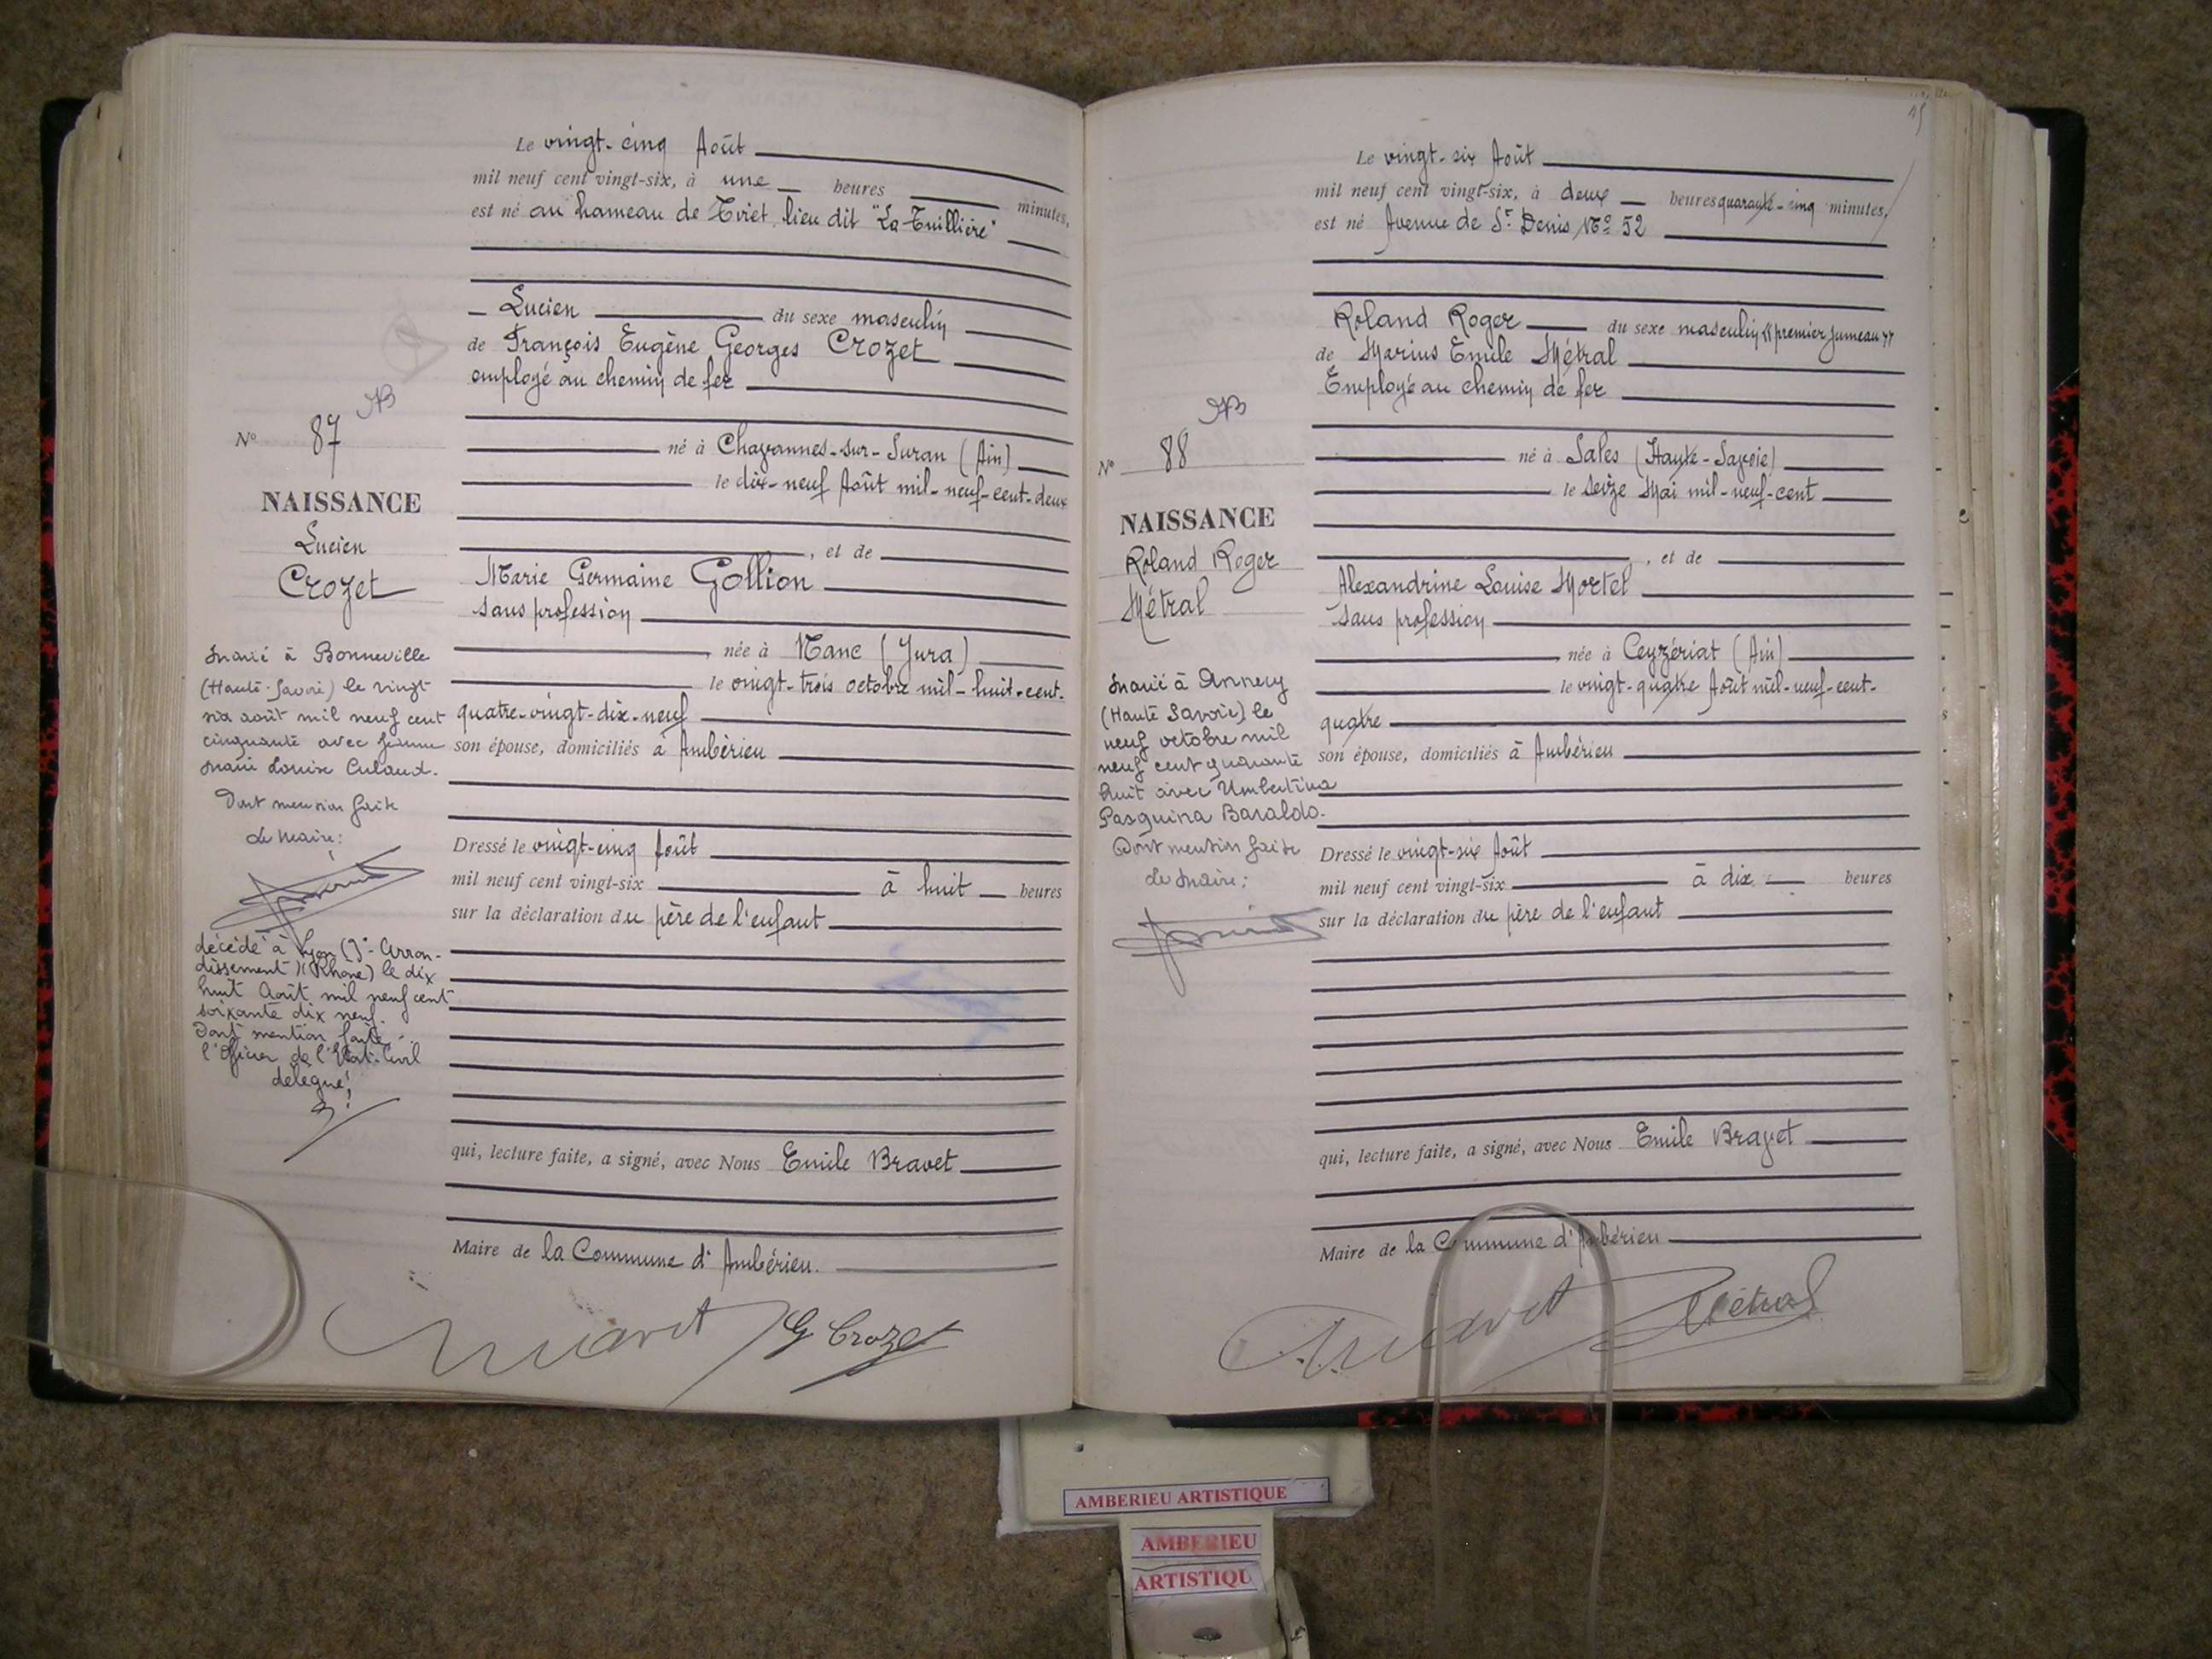 Le vingt-cinq Août
mil neuf cent vingt-six, à une heures minutes,
est né au hameau de Tviet, lieu dit "La Tuillière"
Lucien du sexe masculin
de François Eugène Georges Crozet
employé au chemin de fer
N° 87
né à Chavannes-sur-Suran (Ain)
le dix-neuf Août mil-neuf-cent-deux
NAISSANCE
Lucien
Crozet
, et de
Marie Germaine Gollion
sans profession
, née à Nanc (Jura)
le vingt-trois octobre mil-huit-cent-
quatre-vingt-dix-neuf
son épouse, domiciliés à Ambérieu
marié à Bonneville
(Haute-Savoie) le vingt
six août mil neuf cent
cinquante avec Jeanne
Marie Louise Culaud.
Dont mention faite
Le Maire:
Dressé le vingt-cinq Août
mil neuf cent vingt-six à huit heures
sur la déclaration du père de l'enfant
décédé à Lyon (3e Arron-
dissement) (Rhône) le dix
huit Août mil neuf cent
soixante dix neuf.
Dont mention faite
l'Officier de l'Etat-Civil
délégué!
qui, lecture faite, a signé, avec Nous Emile Bravet
Maire de la Commune d'Ambérieu.
G Crozet
Le vingt-six Août
mil neuf cent vingt-six, à deux heures quarante-cinq minutes,
est né Avenue de St Denis, N° 52
Roland Roger du sexe masculin "premier jumeau"
de Marius Emile Métral
Employé au chemin de fer
N° 88
né à Sales (Haute-Savoie)
le seize Mai mil-neuf-cent
NAISSANCE
Roland Roger
Métral
, et de
Alexandrine Louise Mortel
sans profession
, née à Ceyzériat (Ain)
le vingt-quatre Août mil-neuf-cent-
quatre
son épouse, domiciliés à Ambérieu
marié à Annecy
(Haute Savoie) le
neuf octobre mil
neuf cent quarante
huit avec Umbertina
Pasquina Baraldo.
Dont mention faite
Le Maire:
Dressé le vingt-six Août
mil neuf cent vingt-six à dix heures
sur la déclaration du père de l'enfant
qui, lecture faite, a signé, avec Nous Emile Bravet
Maire de la Commune d'Ambérieu
Métral
AMBERIEU ARTISTIQUE
AMBERIEU
ARTISTIQU